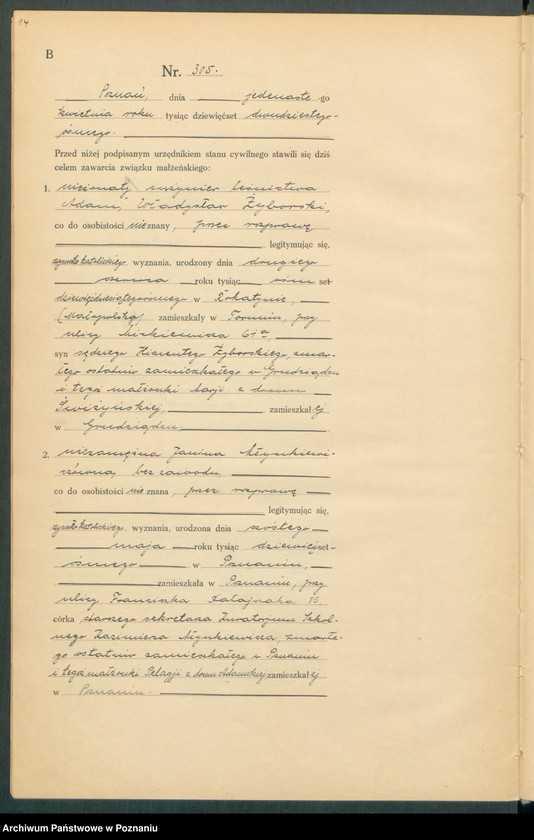 14
B
Nr. 305.
Poznań, dnia jedenaste-go
kwietnia roku tysiąc dziewięćset dwudziestego-
ósmego.
Przed niżej podpisanym urzędnikiem stanu cywilnego stawili się dziś
celem zawarcia związku małżeńskiego:
1. nieżonaty inżynier leśnictwa
Adam, Władysław Żyborski,
co do osobistości nieznany, przez rozprawę
legitymując się,
rzymskokatolickiego wyznania, urodzony dnia drugiego
czerwca roku tysiąc ośmset
dziewięćdziesiątegoósmego w Rohatynie,
(Małopolska) zamieszkały w Toruniu, przy
ulicy Mickiewicza 61a,
syn sędziego Żyborskiego, zmar-
łego ostatnio zamieszkałego w Grudziądzu
i tegoż małżonki Marji z domu
zamieszkałej
w Grudziądzu,
2. niezamężna Janina Młynkiewi-
czówna, bez zawodu,
co do osobistości nieznana, przez rozprawę
legitymując się,
rzymskokatolickiego wyznania, urodzona dnia szóstego
maja roku tysiąc dziewięćset-
ósmego w Poznaniu,
zamieszkała w Poznaniu, przy
ulicy Franciszka Ratajczaka
córka starszego sekretarza Kuratorjum Szkol-
nego Kazimierza Młynkiewicza, zmarłe-
go ostatnio zamieszkałego w Poznaniu
i tegoż małżonki Pelagji z domu Adamskiej zamieszkałej
w Poznaniu.
Archiwum Państwowe w Poznaniu